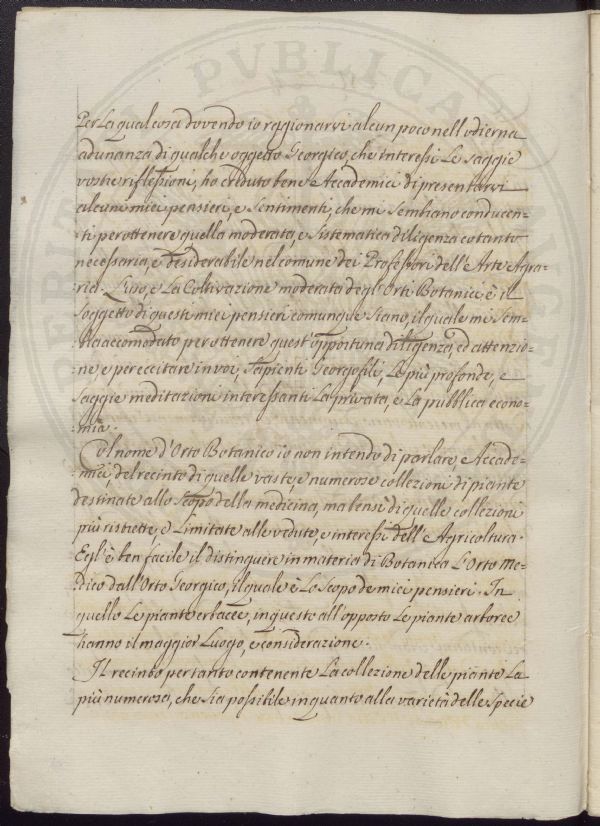 Per La qual cosa dovendo io ragionarvi alcun poco nell'odierna
adunanza di qualche oggetto Georgico, che interessi Le saggie
vostre riflessioni, ho creduto bene Accademici di presentarvi
alcuni miei pensieri, e sentimenti, che mi sembrano conducen=
=ti per ottenere quella moderata, e sistematica diligenza cotanto
necessaria, e desiderabile nel comune dei Professori dell'Arte Agra=
ria. L'uso, e La Coltivazione moderata degl'Orti Botanici è il
soggetto di questi miei pensieri comunque siano, il quale mi sem=
bra accomodato per ottenere quest'opportuna diligenza, ed attenzio=
=ne e per eccitare in voi, Sapienti Georgofili, Le più profonde, e
saggie meditazioni interessanti La privata, e La pubblica econo=
=mia.
Col nome d'Orto Botanico io non intendo di parlare, Accade=
=mici, del recinto di quelle vaste, e numerose collezioni di piante
destinate allo scopo della medicina, ma bensì di quelle collezioni
più ristrette, e Limitate alle vedute, e interessi dell'Agricoltura.
Egl'è ben facile il distinguere in materia di Botanica L'Orto Me=
=dico dall'Orto Georgico, il quale è Lo scopo de miei pensieri. In
quello Le piante erbacee, in questo all'opposto Le piante arboree
hanno il maggior Luogo, e considerazione.
Il recinto pertanto contenente La collezione delle piante La
più numerosa, che sia possibile in quanto alla varietà delle specie
PVBLICA